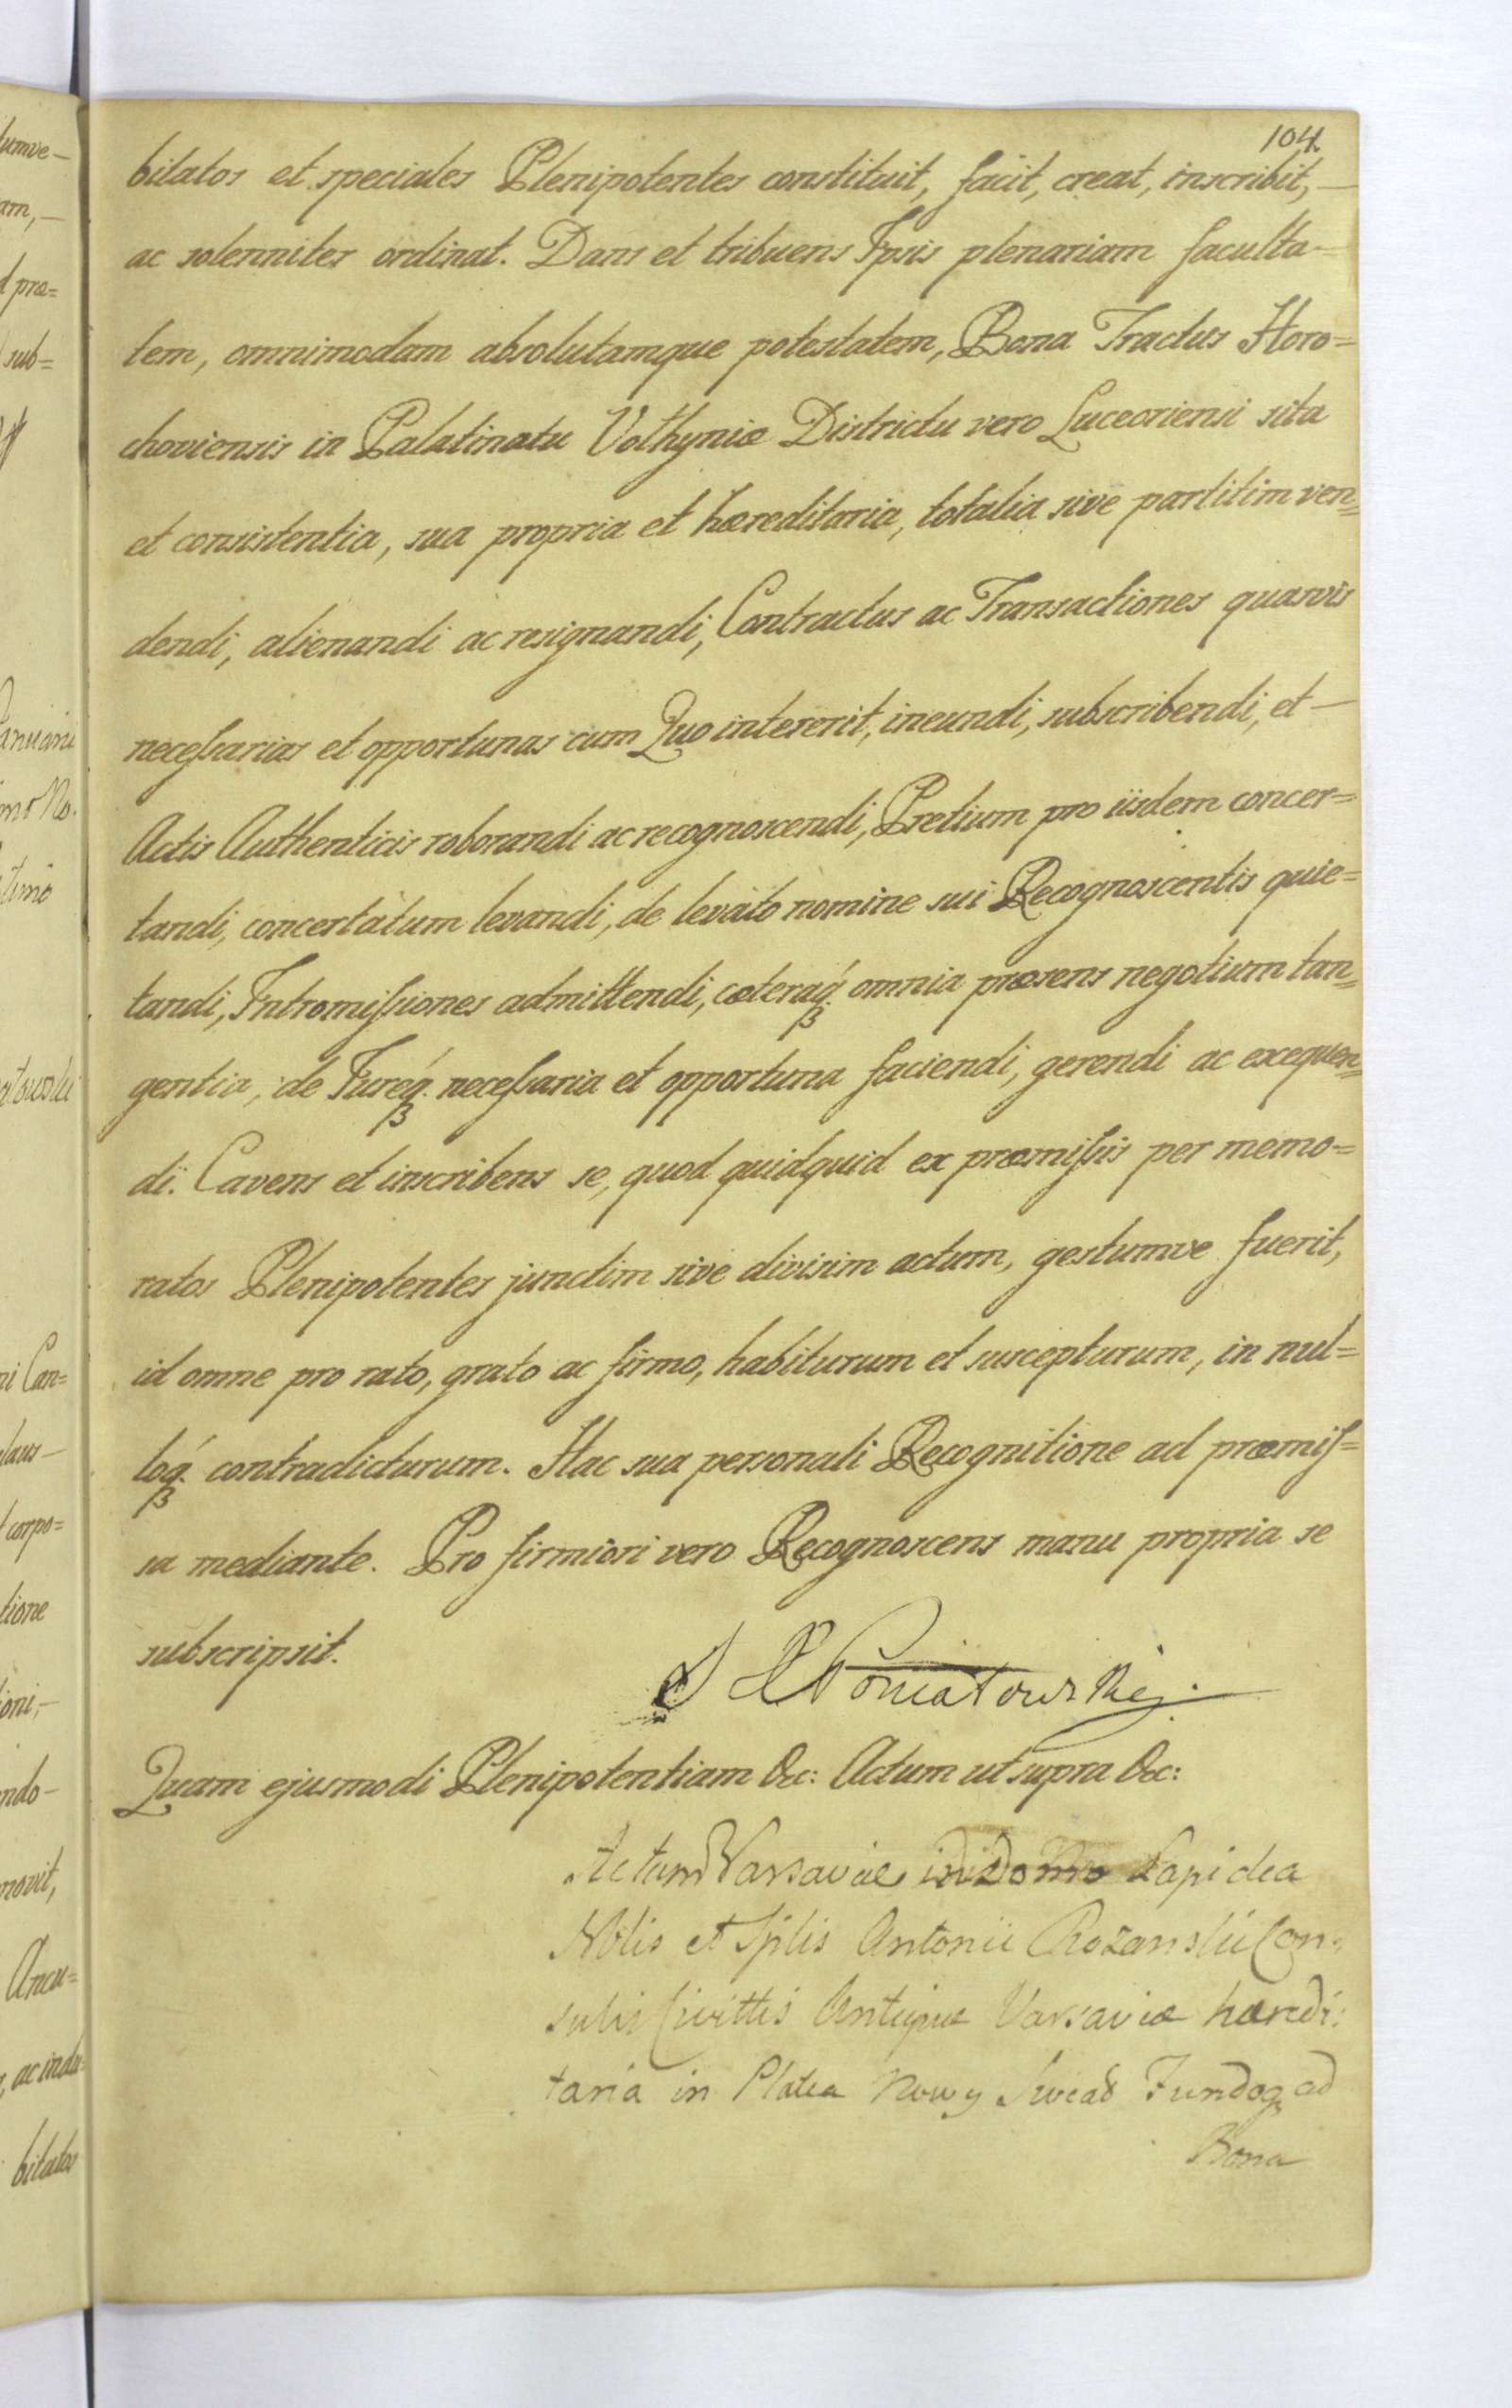 104.
bitatos et speciales Plenipotentes constituit, facit, creat, inscribit, —
ac solenniter ordinat. Dans et tribuens Ipsis plenariam faculta-
tem, omnimodam absolutamque potestatem, Bona Tractus Horo=
choviensis in Palatinatu Volhyniæ Districtu vero Luceoriensi sita
et consistentia, sua propria et hæreditaria, totalia sive partitim ven=
dendi, alienandi ac resignandi, Contractus ac Transactiones quasvis
neceſsarias et opportunas cum Quo intererit, ineundi, subscribendi, et —
Actis Authenticis roborandi ac recognoscendi, Pretium pro iisdem concer=
tandi, concertatum levandi, de levato nomine sui Recognoscentis quie=
tandi, Intromiſsiones admittendi, cæteraq́ꝫ omnia præsens negotium tan=
gentia, de Jureq́ꝫ neceſsaria et opportuna faciendi, gerendi ac exequen=
di. Cavens et inscribens se, quod quidquid ex præmiſsis per memo=
ratos Plenipotentes junctim sive divisim actum, gestumve fuerit,
id omne pro rato, grato ac firmo, habiturum et suscepturum, in nul=
loq́ꝫ contradicturum. Hac sua personali Recognitione ad præmiſ=
sa mediante. Pro firmiori vero Recognoscens manu propria se
subscripsit.
Poniatowski.
Quam ejusmodi Plenipotentiam &c: Actum ut supra &c:
Actum Varsaviæ in Domo Lapidea
Nblis et Splis Antonii Rozanski Con=
sulis Civittis Antiquæ Varsaviæ hæredi:
taria in Platea Nowy Swiat Fundoqꝫ ad
Bona
tumve-
am, —
præ=
sub=
mo No.
Can=
corpo=
tione
ndo-
movit,
ac indu
bitatos